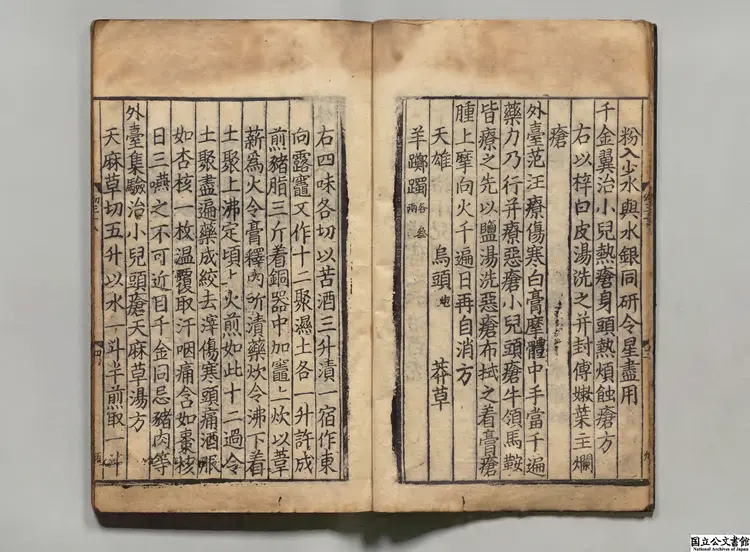 粉入少水與水銀同研令星盡用
千金翼治小兒熱瘡身頭熱煩蝕瘡方
右以梓白皮湯洗之并封傅嫩葉主爛
瘡
外臺范汪療傷寒白膏摩體中手當千遍
藥力乃行并療惡瘡小兒頭瘡牛領馬鞍
皆療之先以鹽湯洗惡瘡布拭之着膏瘡
腫上摩向火千遍日再自消方
天雄 烏頭炮 莽草
羊躑躅各叄兩
右四味各切以苦酒三升漬一宿作東
向露竈又作十二聚濕土各一升許成
煎豬脂三斤着銅器中加竈上炊以葦
薪爲火令膏釋內所漬藥炊令沸下着
土聚上沸定頃上火煎如此十二過令
土聚盡遍藥成絞去滓傷寒頭痛酒服
如杏核一枚温覆取汗咽痛含如棗核
日三嚥之不可近目千金同忌豬肉等
外臺集驗治小兒頭瘡天麻草湯方
天麻草切五升以水一斗半煎取一斗
国立公文書館
National Archives of Japan